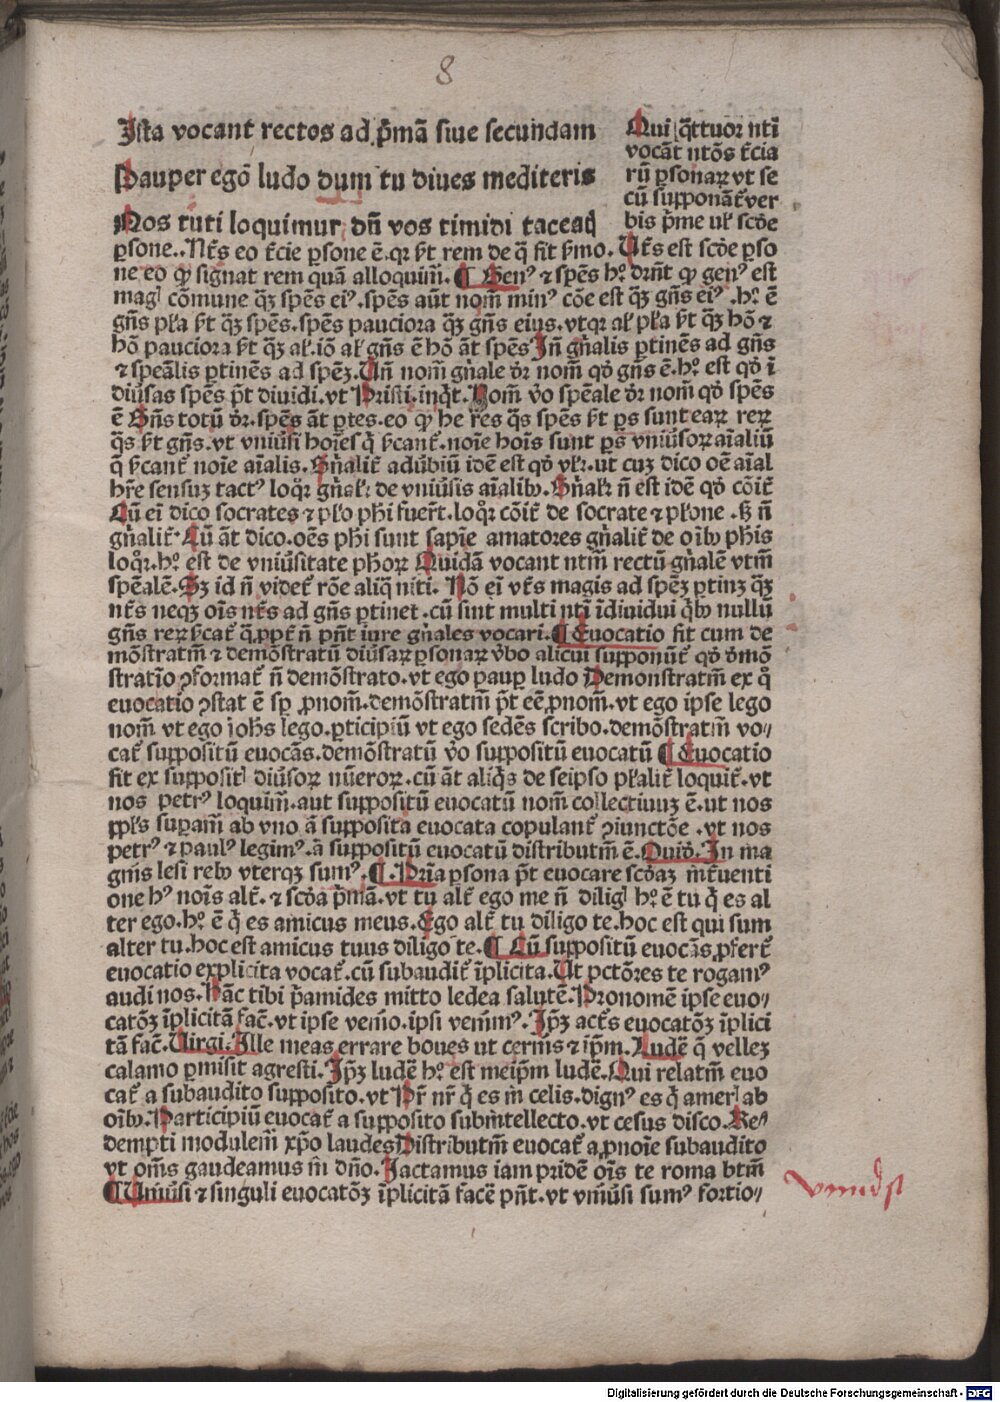 8
Ista vocant rectos ad p̄mā siue secundam
Pauper egō ludo dum tu diues mediteris
Nos tuti loquimur dn̄ vos timidi tacea
Qui q̄ttuor nti
vocāt ntōs t̄cia
rū ꝑsonaꝝ vt se
cū supponāt ver
bis p̄me ul scd̄e
ꝑsone.. Nt̄s eo t̄cie ꝑsone ē. qꝛ ſt rem de q̄ fit ſmo. Vt̄s est scd̄e ꝑso
ne eo ꝙ signat rem quā alloquim̄. ¶ Genꝰ ⁊ spēs hꝰ drn̄t ꝙ genꝰ est
magꝭ cōmune qꝫ spēs eiꝰ. spēs aūt nom̄ minꝰ cōe est qꝫ gn̄s eiꝰ. hꝰ ē
gn̄s pła ſt qꝫ spēs. spēs pauciora qꝫ gn̄s eius. vtqꝛ ał pła ſt qꝫ hō ⁊
hō pauciora ſt qꝫ ał. iō ał gn̄s ē hō āt spēs In̄ gn̄alis ꝑtinēs ad gn̄s
⁊ speālis ꝑtinēs ad spēꝫ. Vn̄ nom̄ gn̄ale dr̄ nom̄ qd̄ gn̄s ē. hꝰ est qd̄ ī
diūsas spēs pt̄ diuidi. vt Pristi. inqt̄. Nom̄ v̄o spēale dr̄ nom̄ qd̄ spēs
ē Gn̄s totū dr̄. spēs āt ꝑtes. eo ꝙ he rēs q̄s spēs ſt ꝑs sunt eaꝝ reꝝ
q̄s ſt gn̄s. vt vniūsi hoīes q̄ ſcant̄. noīe hoīs sunt ꝑs vniūsoꝝ aīaliū
q̄ ſcant̄ noīe aīalis. Gn̄alit̄ adūbiū idē est qd̄ vłr. ut cuꝫ dico oē aīal
hr̄e sensuꝫ tactꝰ loqr̄ gn̄ałr de vniūsis aīalibꝰ. Gn̄ałr n̄ est idē qd̄ cōit̄
Cū ei dico socrates ⁊ płō phī fuert̄. loqr̄ cōit̄ de socrate ⁊ płone. ſꝫ n̄
gn̄alit̄. Cū āt dico. oēs phī sunt sapīe amatores gn̄alit̄ de oībꝰ phīs
loqr̄. hꝰ est de vniūsitate phoꝝ Quidā vocant ntm̄ rectū gn̄alē vtm̄
spēalē. Sꝫ id n̄ videt̄ rōe aliq̄ niti. Nō ei vt̄s magis ad spēꝫ ꝑtinꝫ qꝫ
nt̄s neqꝫ oīs nt̄s ad gn̄s ꝑtinet. cū sint multi nti īdiuidui qͥbꝰ nullū
gn̄s reꝝ ſcat̄ q̄ ꝓpt̄ n̄ pn̄t iure gn̄ales vocari. ¶ Euocatio fit cum de
mōstratm̄ ⁊ demōstratū diūsaꝝ ꝑsonaꝝ v̄bo alicui supponūt̄ qd̄ d̄mō
stratīo ꝯformat̄ n̄ demōstrato. vt ego pauꝑ ludo Demonstratm̄ ex q̊
euocatio ꝯstat ē sꝑ ꝓnom̄. demōstratm̄ pt̄ eē ꝓnom̄. vt ego ipse lego
nom̄ vt ego ioh̄s lego. ꝑticipiū vt ego sedēs scribo. demōstratm̄ vo⸗
cat̄ suppositū euocās. demōstratū v̄o suppositū euocatū ¶ Euocatio
fit ex suppositꝭ diūsoꝝ nūeroꝝ. cū āt aliqͥs de seipso płalit̄ loquit̄. vt
nos petrꝰ loquim̄. aut suppositū euocatū nom̄ collectiuuꝫ ē. ut nos
ppl̄s suꝑam̄ ab vno ā supposita euocata copulant̄ ꝯiunctōe. vt nos
petrꝰ ⁊ paulꝰ legimꝰ. ā suppositū euocatū distributm̄ ē. Ouid̄. In ma
gnis lesi rebꝰ vterqꝫ sumꝰ. ¶ Pria ꝑsona pt̄ euocare scd̄aꝫ int̄uenti
one hꝰ noīs alt̄. ⁊ scd̄a p̄mā. vt tu alt̄ ego me n̄ diligꝭ hꝰ ē tu q̄ es al
ter ego. hꝰ ē q̄ es amicus meus. Ego alt̄ tu diligo te. hoc est qui sum
alter tu. hoc est amicus tuus diligo te. ¶ Cū suppositū euocās ꝓfert̄
euocatio explicita vocat̄. cū subaudit̄ īplicita. Ut pctōres te rogamꝰ
audi nos. Hāc tibi p̄amides mitto ledea salutē. Pronomē ipse euo⸗
catōꝫ īplicitā fac̄. vt ipse venio. ipsi venimꝰ. Ip̄ꝫ act̄s euocatōꝫ īplici
tā fac̄. Virgi. Ille meas errare boues ut cernis ⁊ ip̄m. Ludē q̄ velleꝫ
calamo ꝑmisit agresti. Ip̄ꝫ ludē hꝰ est meip̄m ludē. Qui relatm̄ euo
cat̄ a subaudito supposito. vt Pr̄ nr̄ q̄ es in celis. dignꝰ es q̄ amerꝭ ab
oībꝰ. Participiū euocat̄ a supposito subintellecto. vt cesus disco. Re⸗
dempti modulem̄ xp̄o laudes Distributm̄ euocat̄ a ꝓnoīe subaudito
vt om̄s gaudeamus in dn̄o. Iactamus iam pridē oīs te roma btm̄
¶ Uniūsi ⁊ singuli euocatōꝫ īplicitā facē pn̄t. vt vniūsi sumꝰ fortio⸗
Digitalisierung gefördert durch die Deutsche Forschungsgemeinschaft - DFG